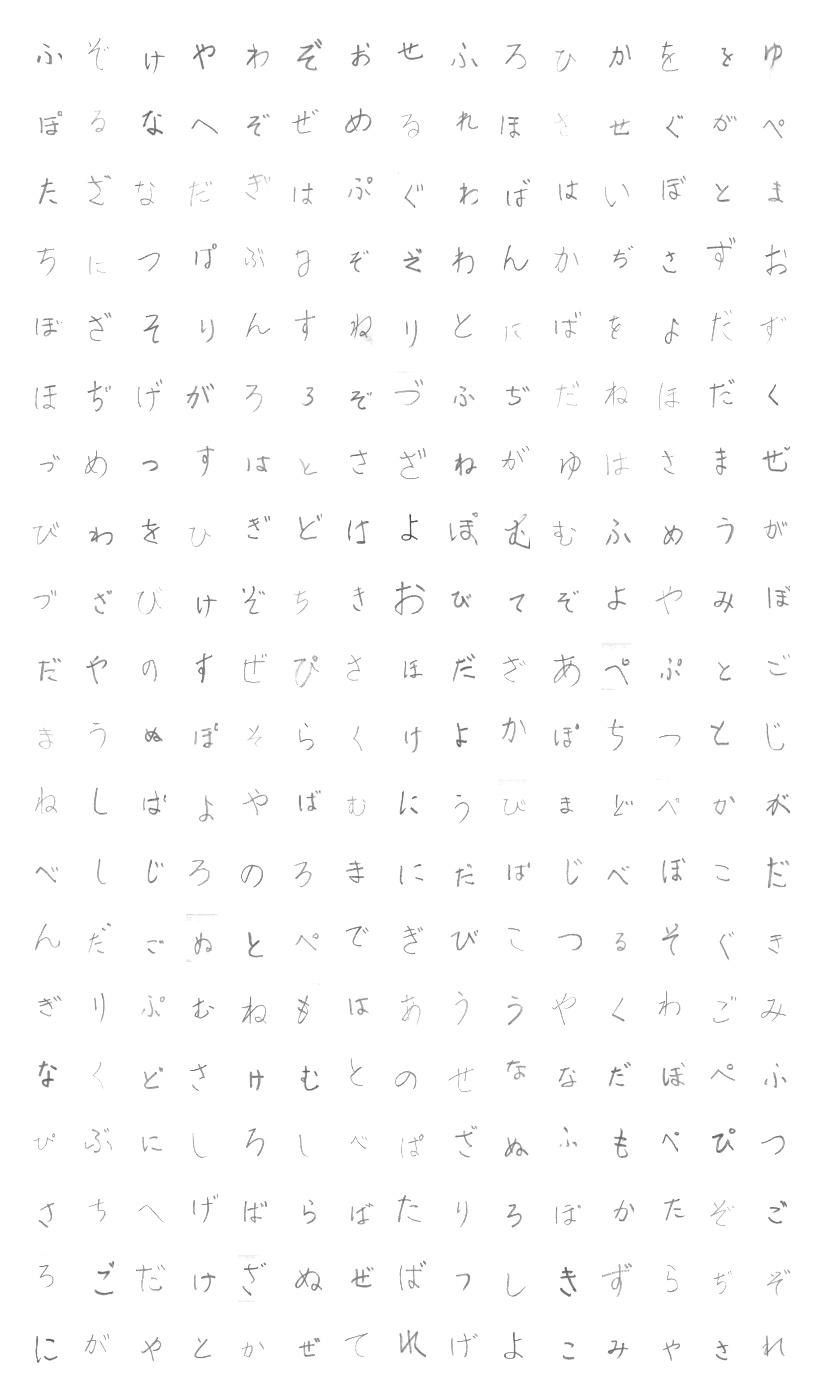 ふぞけやわぞおせふろひかををゆ
ぽるなへぞぜめるれほさせぐがぺ
たざなだぎはぷぐわばはいぼとま
ちにつぱぶなぞざわんかぢさずお
ぼざそりんすねりとにばをよだず
ほぢげがろろぞづふぢだねほだく
づめつすはとさざねがゆはさまぜ
びわをひぎどはよぽむむふめうが
づざびけぞちきおびてぞよやみぼ
だやのすぜぴさほだざあぺぷとご
まうぬぽそらくけよかぽちつとじ
ねしばよやばむにうびまどぺかが
べしじろのろまにだばじべぼこだ
んだごぬとぺでぎびこつるそぐき
ぎりぷむねもはあううやくわごみ
なくどさけむとのせななだぼぺふ
ぴぶにしろしべぱざぬふもぺぴつ
さちへげばらばたりろぽかたぞご
ろごだけざぬぜばつしきずらぢぞ
にがやとかぜてれげよこみやされ